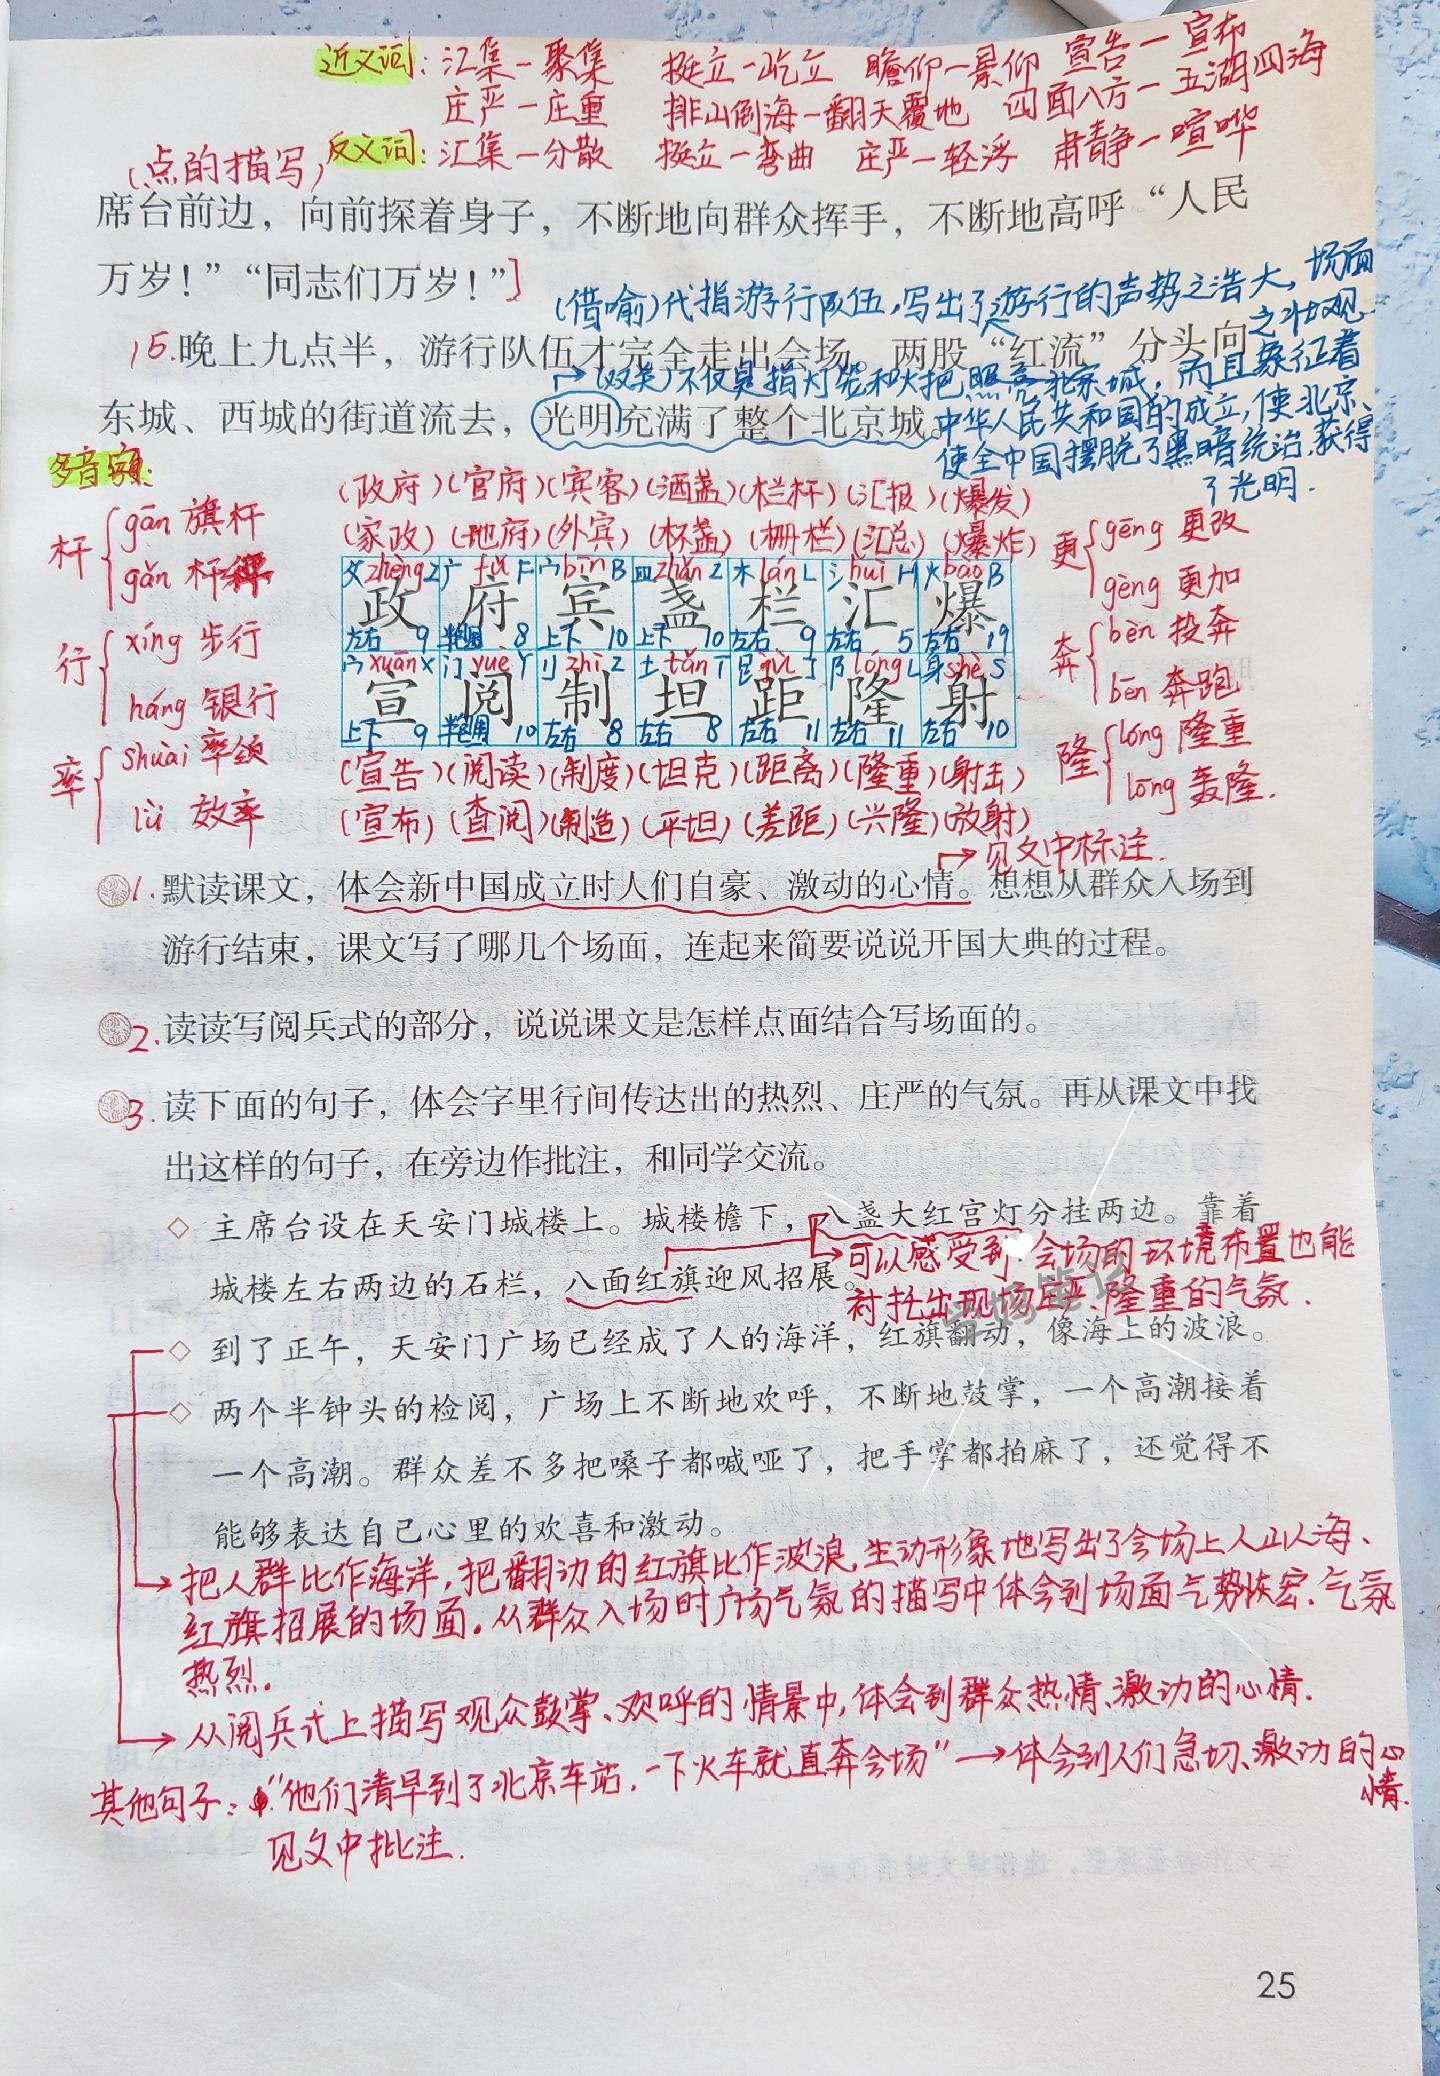 近义词：汇集—聚集 挺立—屹立 瞻仰—景仰 宣告—宣布
庄严—庄重 排山倒海—翻天覆地 四面八方—五湖四海
反义词：汇集—分散 挺立—弯曲 庄严—轻浮 肃静—喧哗
(点的描写)
席台前边，向前探着身子，不断地向群众挥手，不断地高呼“人民
万岁！”“同志们万岁！”]
(借喻)代指游行队伍，写出了游行的声势之浩大，场面
之壮观
15.晚上九点半，游行队伍才完全走出会场。两股“红流”分头向
(双关)不仅是指灯笼和火把照亮北京城，而且象征着
东城、西城的街道流去，光明充满了整个北京城。
中华人民共和国的成立，使北京、
使全中国摆脱了黑暗统治，获得
了光明.
多音字：
杆 gān 旗杆
gǎn 杆秤
行 xíng 步行
háng 银行
率 shuài 率领
lǜ 效率
(政府)(官府)(宾客)(酒盏)(栏杆)(汇报)(爆发)
(家政)(地府)(外宾)(杯盏)(栅栏)(汇总)(爆炸)
攵zhèngZ 广fǔF 宀bīnB 皿zhǎnZ 木lánL 氵huìH 火bàoB
政 府 宾 盏 栏 汇 爆
左右9 半包围8 上下10 上下10 左右9 左右5 左右19
宀xuānX 门yuèY 刂zhìZ 土tǎnT 𧾷jùJ 阝lóngL 身shèS
宣 阅 制 坦 距 隆 射
上下9 半包围10 左右8 左右8 左右11 左右11 左右10
(宣告)(阅读)(制度)(坦克)(距离)(隆重)(射击)
(宣布)(查阅)(制造)(平坦)(差距)(兴隆)(放射)
更 gēng 更改
gèng 更加
奔 bèn 投奔
bēn 奔跑
隆 lóng 隆重
lōng 轰隆.
见文中标注.
1.默读课文，体会新中国成立时人们自豪、激动的心情。想想从群众入场到
游行结束，课文写了哪几个场面，连起来简要说说开国大典的过程。
2.读读写阅兵式的部分，说说课文是怎样点面结合写场面的。
3.读下面的句子，体会字里行间传达出的热烈、庄严的气氛。再从课文中找
出这样的句子，在旁边作批注，和同学交流。
◇ 主席台设在天安门城楼上。城楼檐下，八盏大红宫灯分挂两边。靠着
城楼左右两边的石栏，八面红旗迎风招展。
可以感受到：会场的环境布置也能
衬托出现场庄严、隆重的气氛.
◇ 到了正午，天安门广场已经成了人的海洋，红旗翻动，像海上的波浪。
◇ 两个半钟头的检阅，广场上不断地欢呼，不断地鼓掌，一个高潮接着
一个高潮。群众差不多把嗓子都喊哑了，把手掌都拍麻了，还觉得不
能够表达自己心里的欢喜和激动。
把人群比作海洋，把翻动的红旗比作波浪，生动形象地写出了会场上人山人海、
红旗招展的场面。从群众入场时广场气氛的描写中体会到场面气势恢宏、气氛
热烈。
从阅兵式上描写观众鼓掌、欢呼的情景中，体会到群众热情、激动的心情.
其他句子：“他们清早到了北京车站，一下火车就直奔会场”→体会到人们急切、激动的心
情.
见文中批注.
25